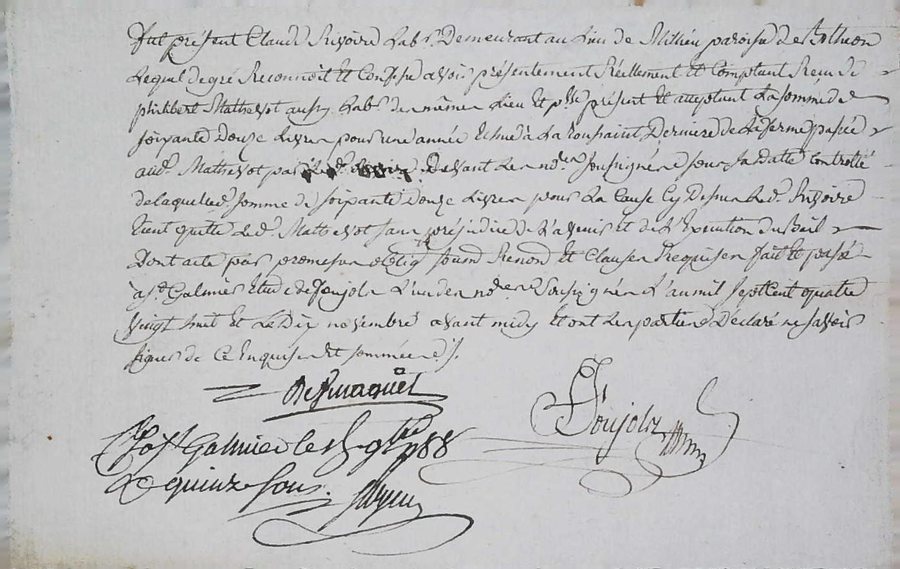 fut présent Claude Rivoire Lab.r Demeurant au Lieu de Milhieu paroisse de
Lequel de gré Reconnoit Et Confesse avoir présentement Réellement Et Comptant Reçu de
philibert Mathevot aussy Lab.r du même Lieu Et p.sse présent Et acceptant La somme de
soixante Douze Livres pour une année Echue à La toussaint Derniere de La ferme passée
aud. Mathevot par Led. Rivoire Devant Les no.res soussignés sous sa datte Controllé
de laquelle d. somme de soixante Douze Livres pour La Cause Cy Dessus Led. Rivoire
tient quitte Led. Mathevot sans préjudice de L'avenir Et de L'Execution du Bail
Dont acte par promesses oblig. soum. Renond Et Clauses Requises fait Et passé
a s.t Galmier Etude de Joujols L'un des no.res Soussignés L'an mil sept Cent quatre
vingt huit Et Le Dix novembre avant midy Et ont Les parties Déclaré ne savoir
signer de Ce Enquises Et sommées ./.
Joujols
a s.t Galmier le 9bre 1788
R quinze sous.